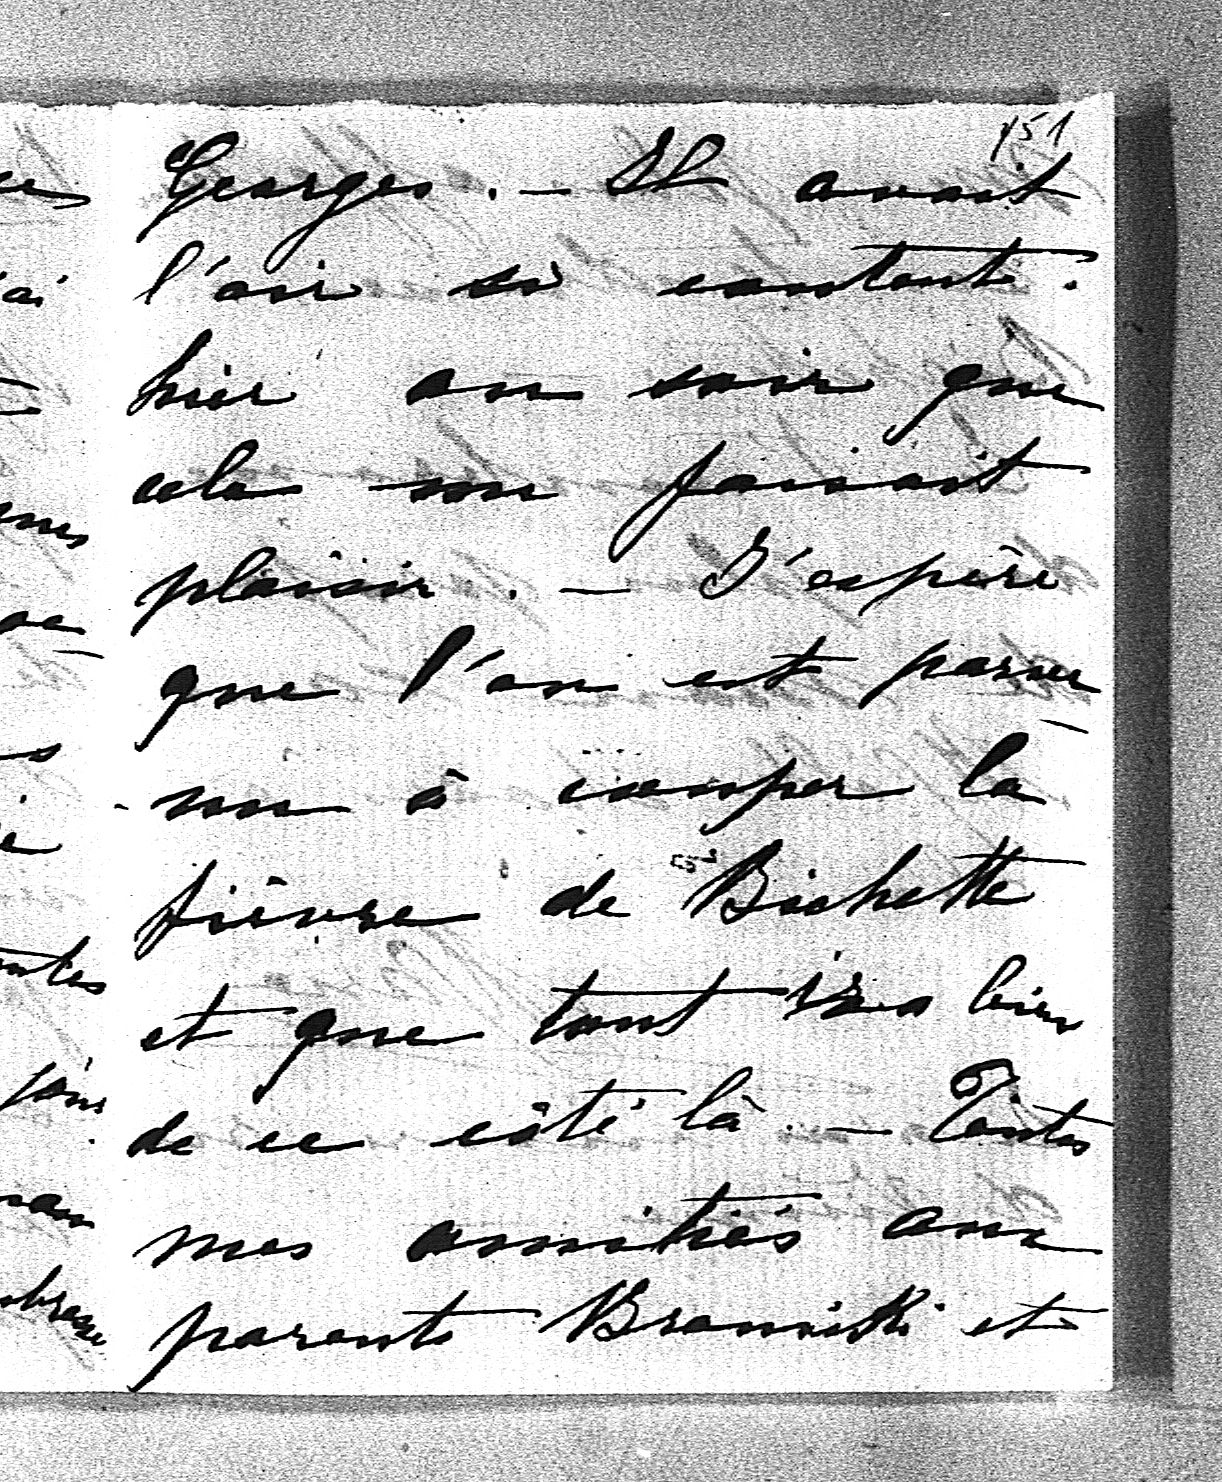 151
Georges. — Il avait
l'air si content.
hier au soir que
cela me faisait
plaisir. — J'espère
que l'on est parve-
nu à couper la
fièvre de Bichette
et que tout ira bien
de ce côté là. — Toutes
mes amitiés aux
parents Branicki et